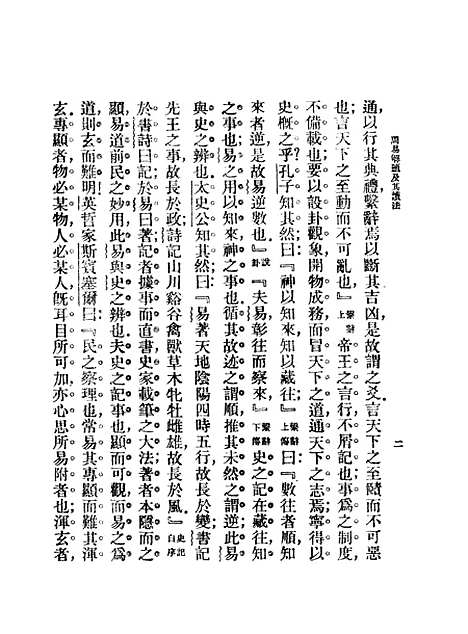 周易解題及其讀法
二
通，以行其典禮，繫辭焉以斷其吉凶，是故謂之爻。言天下之至賾而不可惡
也；言天下之至動而不可亂也。』繫辭上帝王之言行，不屑記也；事爲之制度，
不備載也；要以設卦觀象，開物成務，而冒天下之道，通天下之志焉；寧得以
史概之乎？孔子知其然，曰：『神以知來，知以藏往；』繫辭上傳曰：『數往者順，知
來者逆，是故易逆數也。』說卦『夫易，彰往而察來。』繫辭下傳史之記在藏往，知
之事也；易之用以知來，神之事也。循其故迹之謂順，推其未然之謂逆；此易
與史之辨也。太史公知其然，曰：『易著天地陰陽四時五行，故長於變；書記
先王之事，故長於政；詩記山川谿谷禽獸草木牝牡雌雄，故長於風。』史記自序
於書詩曰記；於易曰著；記者據事而直書，史家載筆之大法；著者本隱而之
顯，易道前民之妙用，此易與史之辨也。夫史之記事也，顯而可觀，而易之爲
道，則玄而難明！英哲家斯賓塞爾曰：『民之察理也，常易其專顯，而難其渾
玄。專顯者，物必某物，人必某人，旣耳目所可加，亦心思所易附者也；渾玄者，